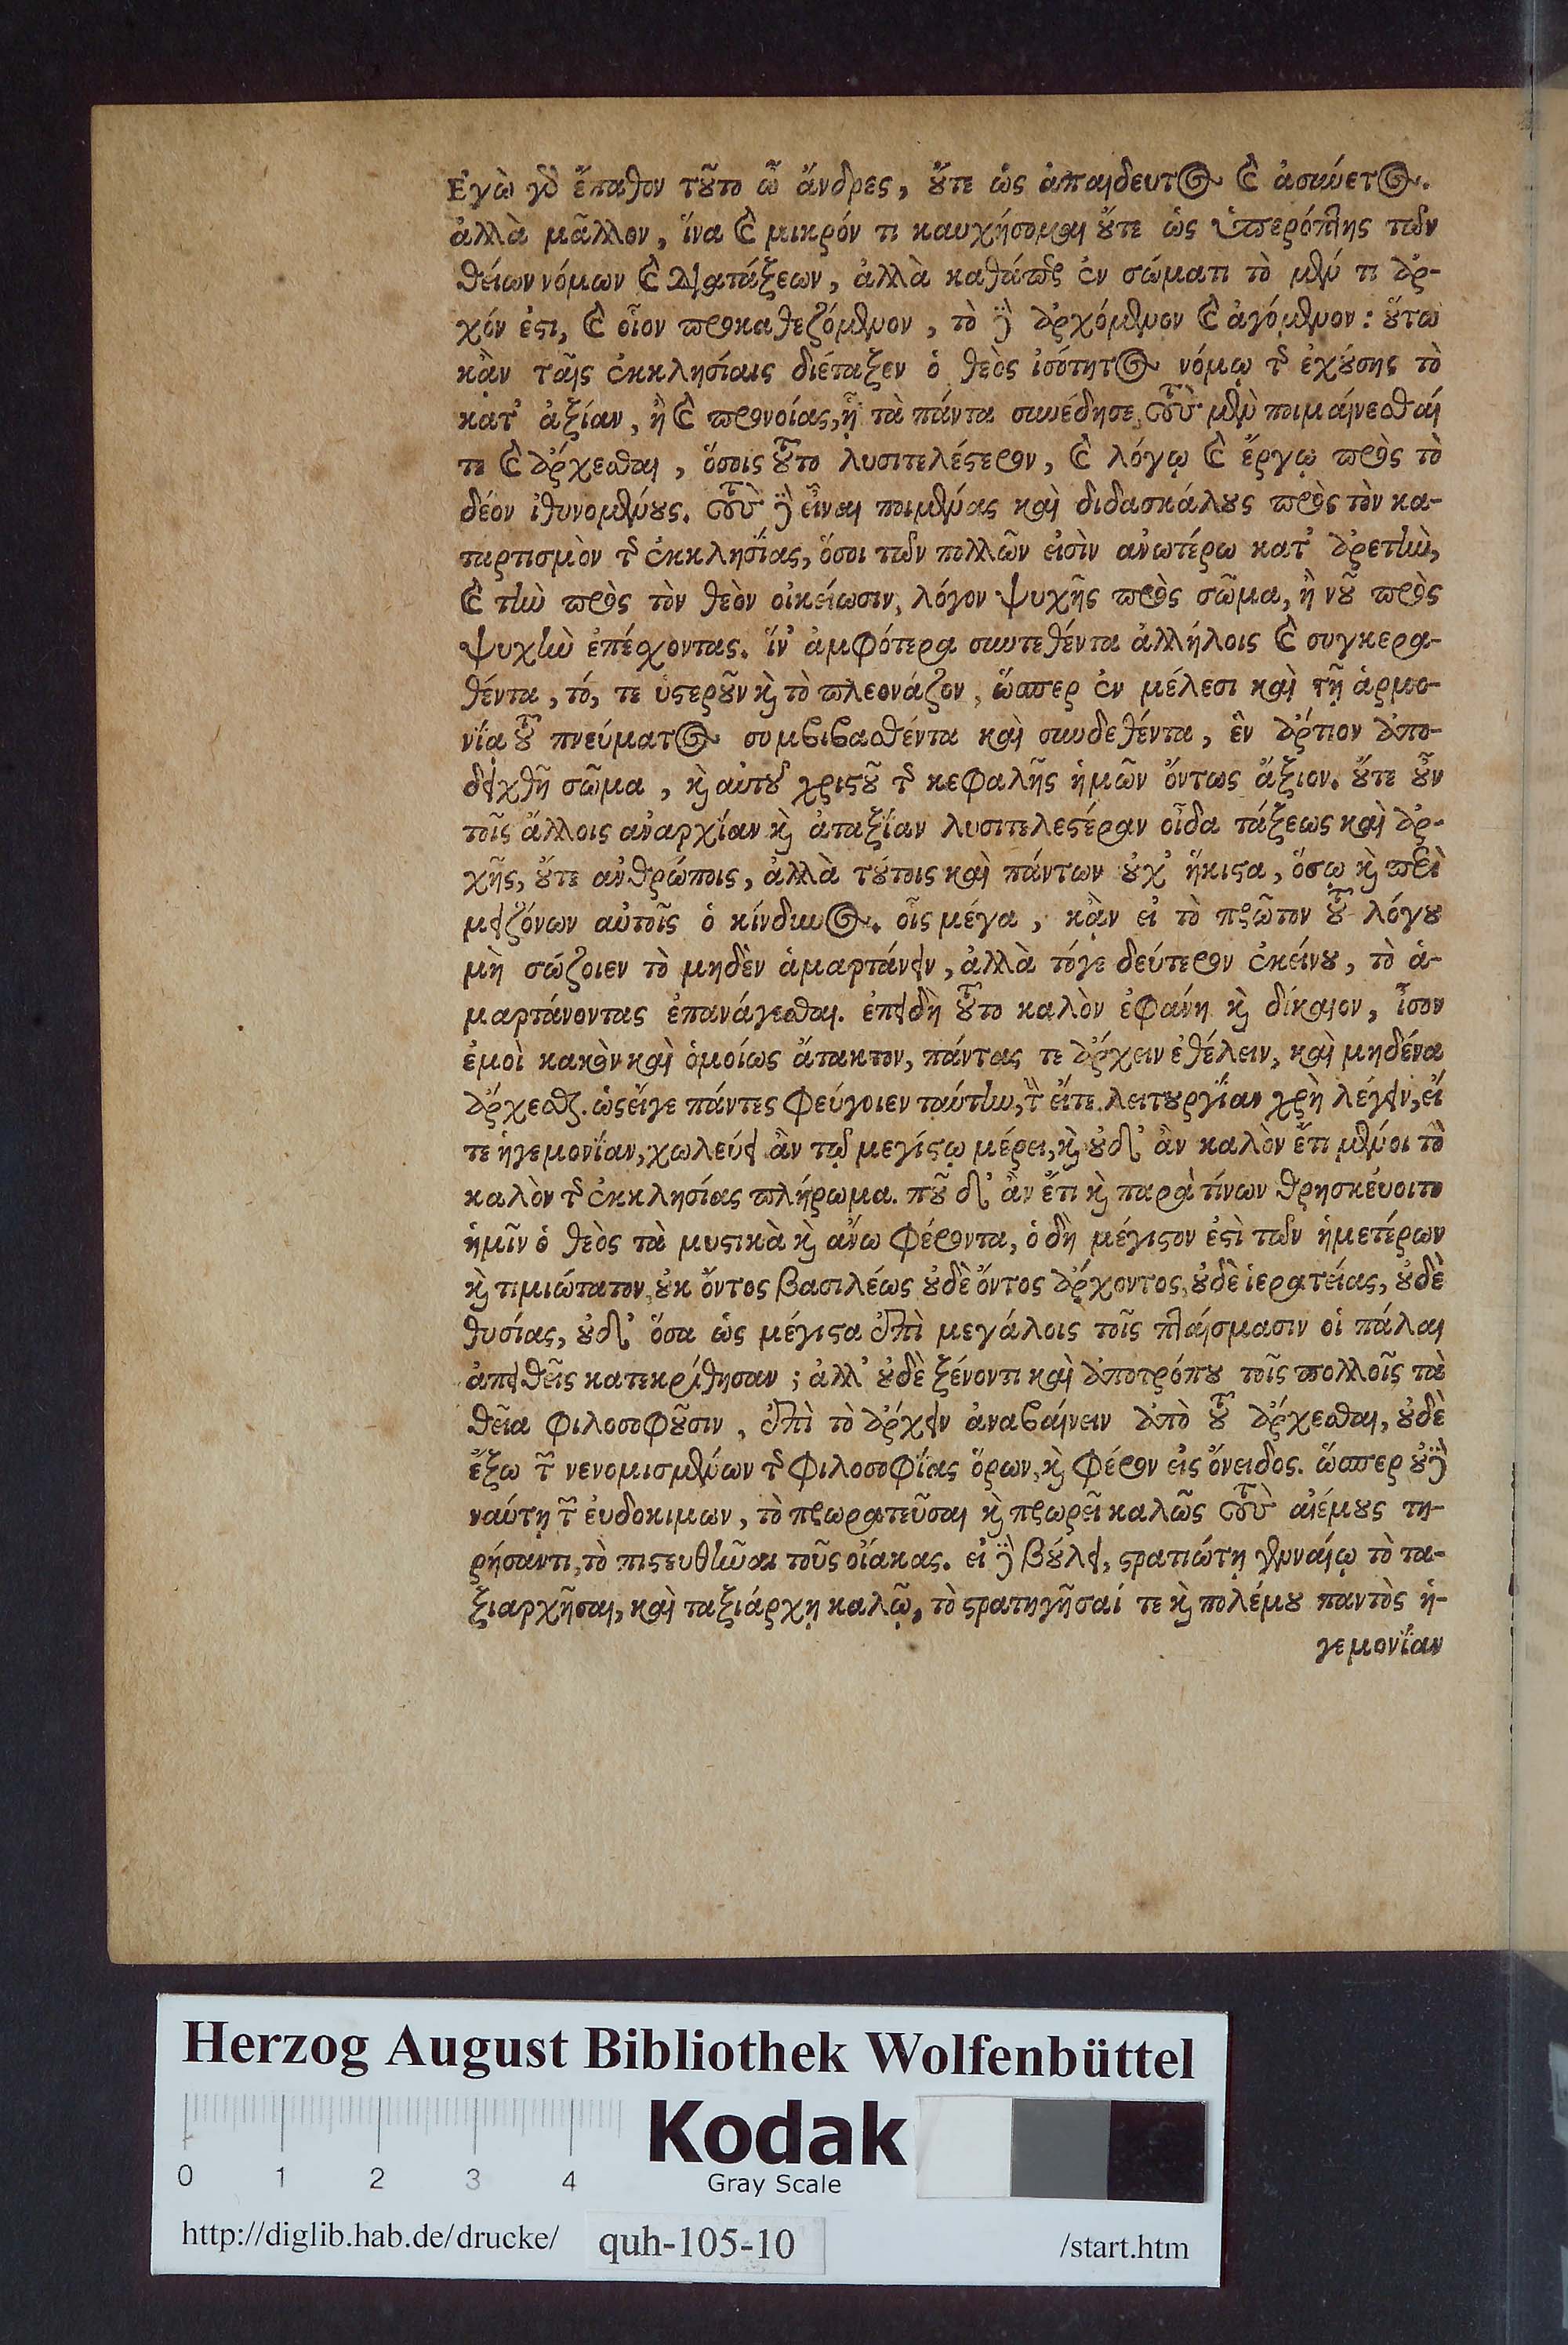 Ἐγὼ γὸ ἔπαθον τοῦτο ὦ ἄνδρες, οὔτε ὡς ἀπαίδευτος καὶ ἀσύνετος.
ἀλλὰ μᾶλλον, ἵνα καὶ μικρόν τι καυχήσομαι οὔτε ὡς ὑπερόπτης τῶν
θείων νόμων καὶ διατάξεων, ἀλλὰ καθάπερ ἐν σώματι τὸ μέν τι ἀρ-
χόν ἐστι, καὶ οἷον προκαθεζόμενον, τὸ δὲ ἀρχόμενον καὶ ἀγόμενον: οὕτω
κἂν ταῖς ἐκκλησίαις διέταξεν ὁ θεὸς ἰσότητος νόμῳ τῆς ἐχούσης τὸ
κατ' ἀξίαν, ἢ καὶ προνοίας, ᾗ τὰ πάντα συνέδησε, τοὺς μὲν ποιμαίνεσθαί
τε καὶ ἄρχεσθαι, ὅσοις τοῦτο λυσιτελέστερον, καὶ λόγῳ καὶ ἔργῳ πρὸς τὸ
δέον ἰθυνομένους. τοὺς δὲ εἶναι ποιμένας καὶ διδασκάλους πρὸς τὸν κα-
ταρτισμὸν τῆς ἐκκλησίας, ὅσοι τῶν πολλῶν εἰσὶν ἀνωτέρω κατ' ἀρετὴν,
καὶ τὴν πρὸς τὸν θεὸν οἰκείωσιν, λόγον ψυχῆς πρὸς σῶμα, ἢ νοῦ πρὸς
ψυχὴν ἐπέχοντας. ἵν' ἀμφότερα συντεθέντα ἀλλήλοις καὶ συγκερα-
θέντα, τό, τε ὑστεροῦν καὶ τὸ πλεονάζον, ὥσπερ ἐν μέλεσι καὶ τῇ ἁρμο-
νίᾳ τοῦ πνεύματος συμβιβασθέντα καὶ συνδεθέντα, ἓν ἄρτιον ἀπο-
δειχθῇ σῶμα, καὶ αὐτοῦ χριστοῦ τῆς κεφαλῆς ἡμῶν ὄντως ἄξιον. οὔτε οὖν
τοῖς ἄλλοις ἀναρχίαν καὶ ἀταξίαν λυσιτελεστέραν οἶδα τάξεως καὶ ἀρ-
χῆς, οὔτε ἀνθρώποις, ἀλλὰ τούτοις καὶ πάντων οὐχ' ἥκιστα, ὅσῳ καὶ περὶ
μειζόνων αὐτοῖς ὁ κίνδυνος. οἷς μέγα, κἂν εἰ τὸ πρῶτον τοῦ λόγου
μὴ σώζοιεν τὸ μηδὲν ἁμαρτάνειν, ἀλλὰ τόγε δεύτερον ἐκείνου, τὸ ἁ-
μαρτάνοντας ἐπανάγεσθαι. ἐπειδὴ τοῦτο καλὸν ἐφάνη καὶ δίκαιον, ἶσον
ἐμοὶ κακὸν καὶ ὁμοίως ἄτακτον, πάντας τε ἄρχειν ἐθέλειν, καὶ μηδένα
ἄρχεσθαι. ὡς εἴγε πάντες φεύγοιεν ταύτην, τὴν εἴτε λειτουργίαν χρὴ λέγειν, εἴ
τε ἡγεμονίαν, χωλεύει ἂν τῷ μεγίστῳ μέρει, καὶ οὐδ' ἂν καλὸν ἔτι μένοι τὸ
καλὸν τῆς ἐκκλησίας πλήρωμα. ποῦ δ' ἂν ἔτι καὶ παρὰ τίνων θρησκεύοιτο
ἡμῖν ὁ θεὸς τὰ μυστικὰ καὶ ἄνω φέροντα, ὁ δὴ μέγιστον ἐστὶ τῶν ἡμετέρων
καὶ τιμιώτατον, οὐκ ὄντος βασιλέως οὐδὲ ὄντος ἄρχοντος, οὐδὲ ἱερατείας, οὐδὲ
θυσίας, οὐδ' ὅσα ὡς μέγιστα ἐπὶ μεγάλοις τοῖς πταίσμασιν οἱ πάλαι
ἀπειθεῖς κατεκρίθησαν; ἀλλ' οὐδὲ ξένον τι καὶ ἀποτρόπου τοῖς πολλοῖς τὰ
θεῖα φιλοσοφοῦσιν, ἐπὶ τὸ ἄρχειν ἀναβαίνειν ἀπὸ τοῦ ἄρχεσθαι, οὐδὲ
ἔξω τῶν νενομισμένων τῆς φιλοσοφίας ὅρων, καὶ φέρον εἰς ὄνειδος. ὥσπερ οὐδὲ
ναύτῃ τῶν εὐδοκίμων, τὸ πρωρατεῦσαι καὶ πρωρεῖ καλῶς τοὺς ἀνέμους τη-
ρήσαντι, τὸ πιστευθῆναι τοὺς οἴακας. εἰ δὲ βούλει, στρατιώτῃ γενναίῳ τὸ τα-
ξιαρχῆσαι, καὶ ταξιάρχῃ καλῷ, τὸ στρατηγῆσαί τε καὶ πολέμου παντὸς ἡ-
γεμονίαν
Herzog August Bibliothek Wolfenbüttel
0 1 2 3 4
Kodak
Gray Scale
http://diglib.hab.de/drucke/ quh-105-10 /start.htm